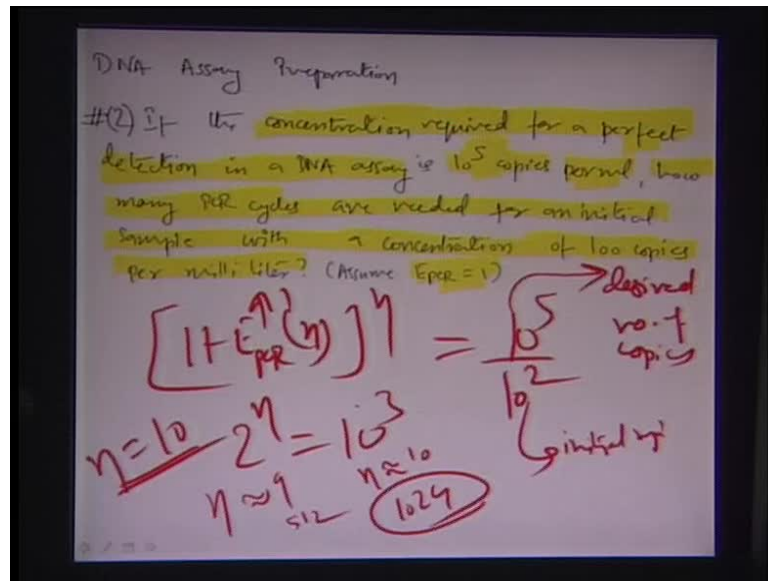 DNA Assay Preparation
#(2) If the concentration required for a perfect
detection in a DNA assay is 10^5 copies per ml, how
many PCR cycles are needed for an initial
sample with a concentration of 100 copies
per milliliter? (Assume EPCR = 1)
[1+EPCR(n)]^n = 10^5/10^2
1
desired
no. of
copies
initial
2^n = 10^3
n=10
n≈9
512
n≈10
1024